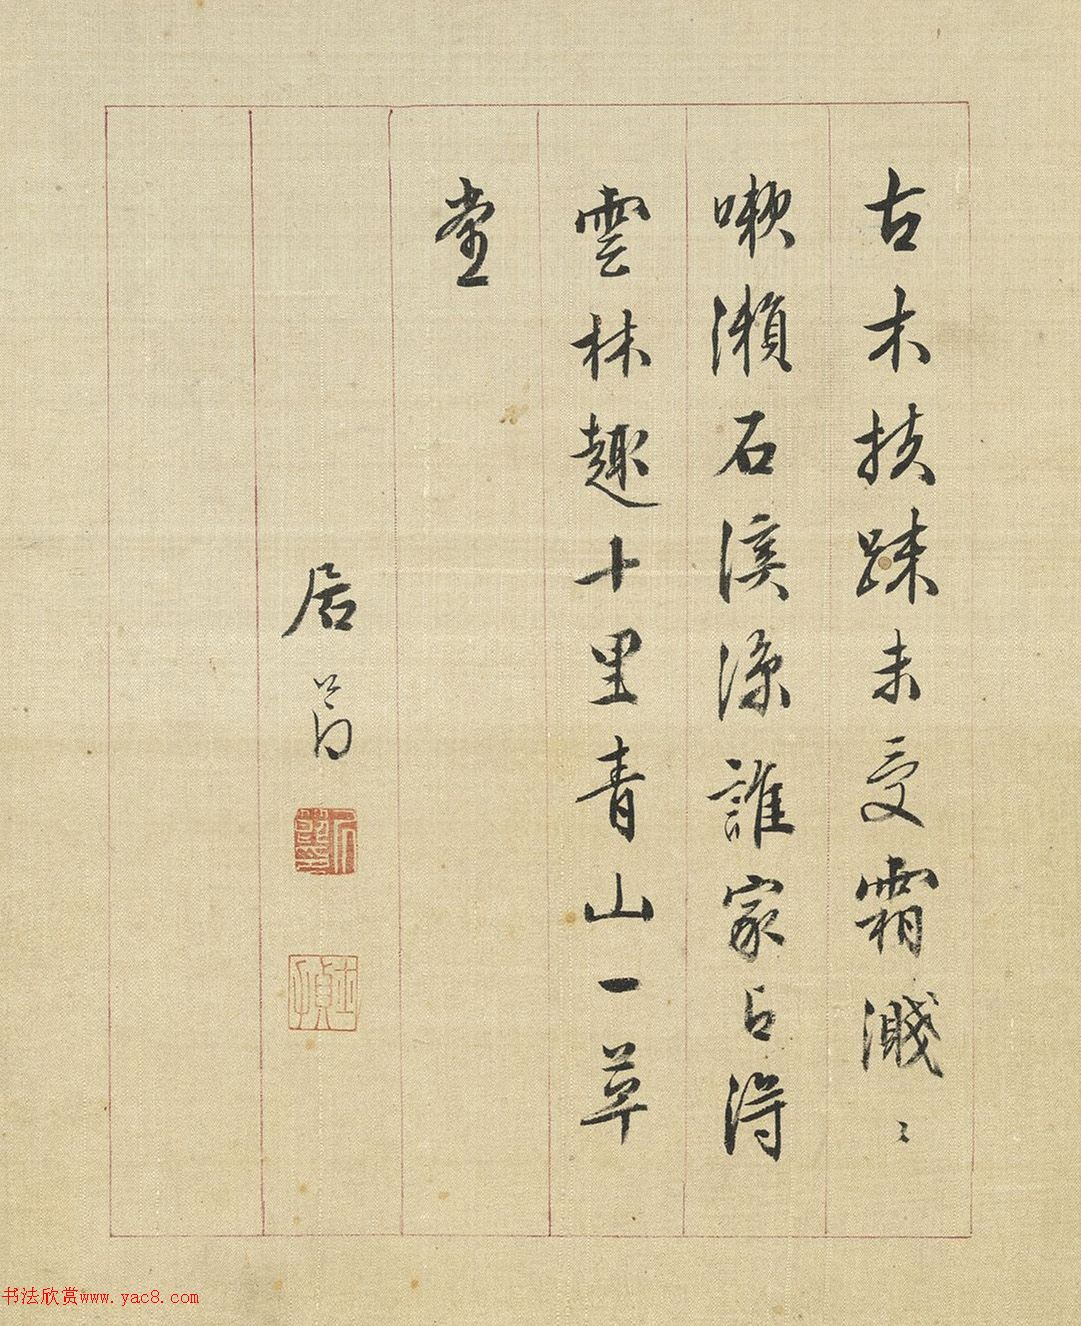 古木扶疎未受霜濺〻
嗽瀨石溪涼誰家占得
雲林趣十里青山一草
堂
居翁
书法欣赏www.yac8.com